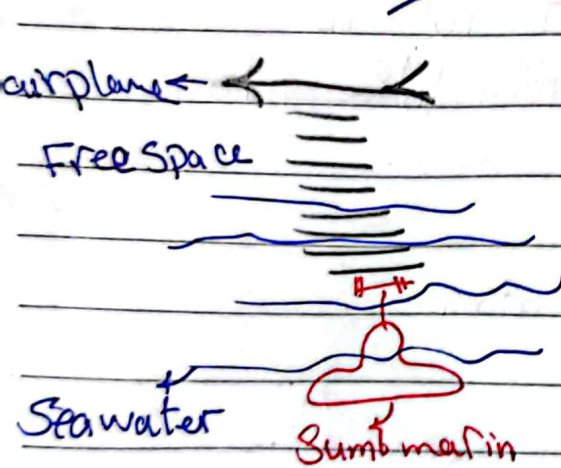 airplane
Free Space
Seawater
Sumbmarin